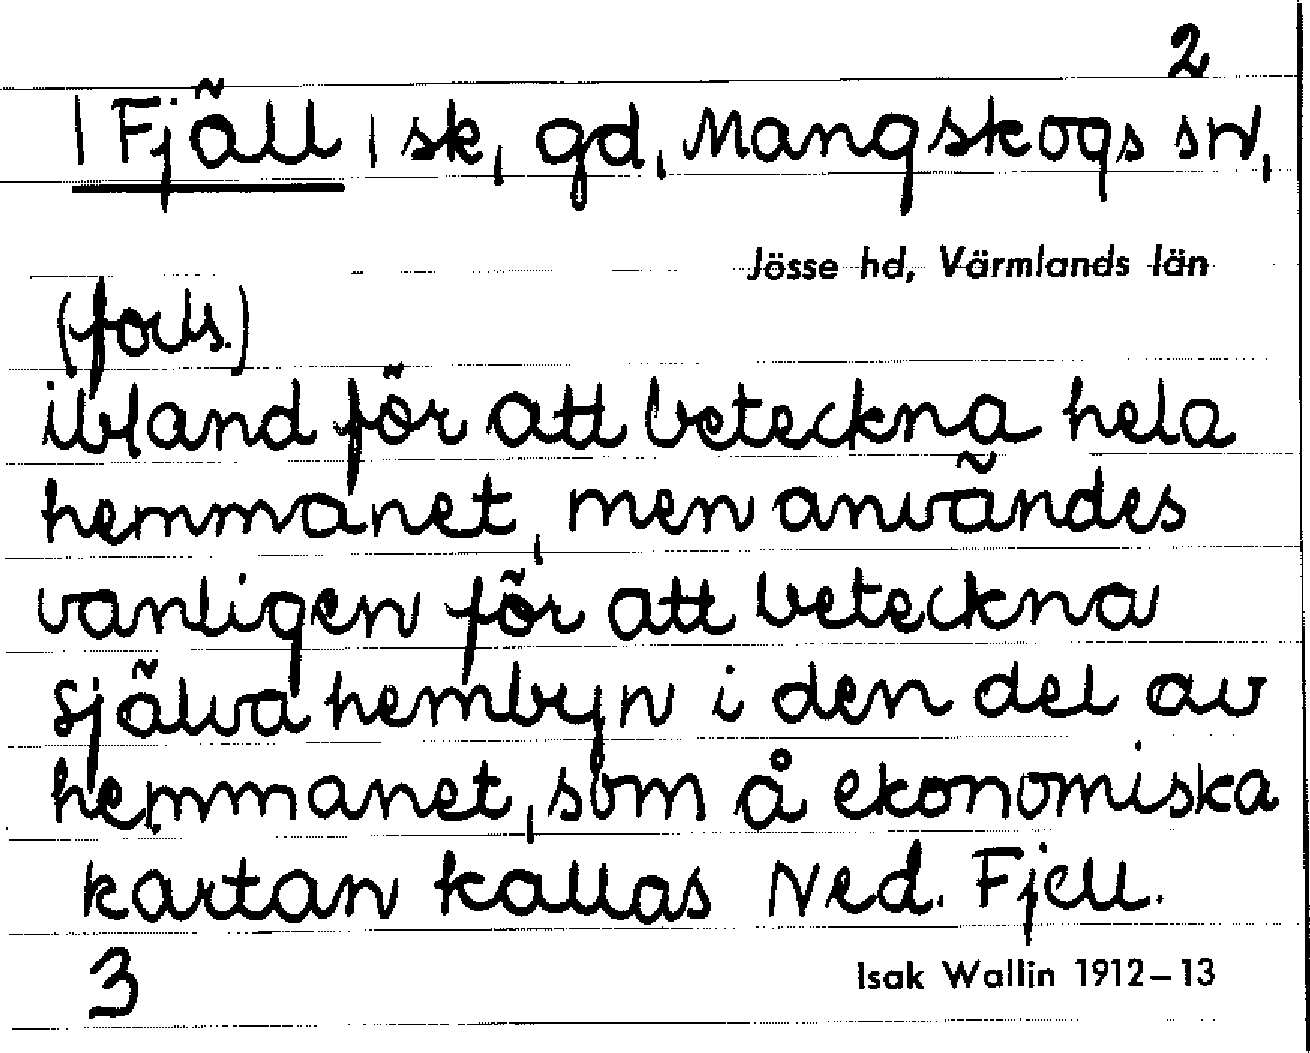 2
| Fjäll | sk, gd, Mangskogs sn,
Jösse hd, Värmlands län
(forts.)
ibland för att beteckna hela
hemmanet, men användes
vanligen för att beteckna
själva hembyn i den del av
hemmanet, som å ekonomiska
kartan kallas Ned. Fjell.
3
Isak Wallin 1912–13